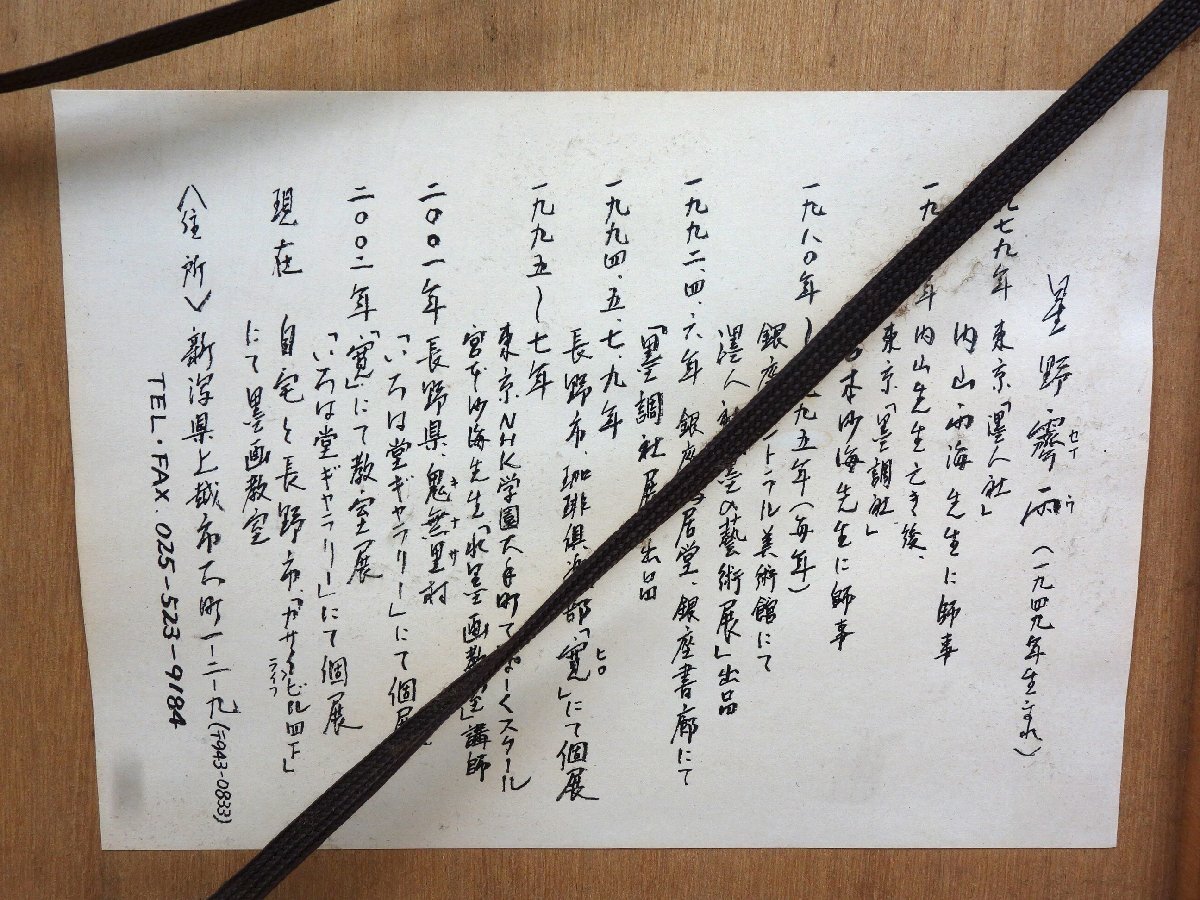 星野霽雨（一九四九年生まれ）
セイ ウ
七九年 東京「墨人社」
内山雨海先生に師事
一九 年 内山先生亡き後、
東京「墨調社」
本沙海先生に師事
一九八〇年〜 九五年（毎年）
銀座 トラル美術館にて
墨人 墨の藝術展」出品
一九九二、四、六年 銀座 居堂、銀座書廊にて
「墨調社展 出品
一九九四、五、七、九年
長野市、珈琲倶楽部「寛」にて個展
ヒロ
一九九五〜七年
東京、NHK学園大手町 ぱーくスクール
宮本沙海先生「水墨画教室」講師
二〇〇一年 長野県、鬼無里村
キナサ
「いろは堂ギャラリー」にて個展
二〇〇二年「寛」にて教室展
「いろは堂ギャラリー」にて個展
現在 自宅と長野市、「カサ ビル四F」
にて墨画教室
〈住所〉 新潟県上越市大町一-二-九（〒943-0833）
TEL・FAX. 025-523-9184